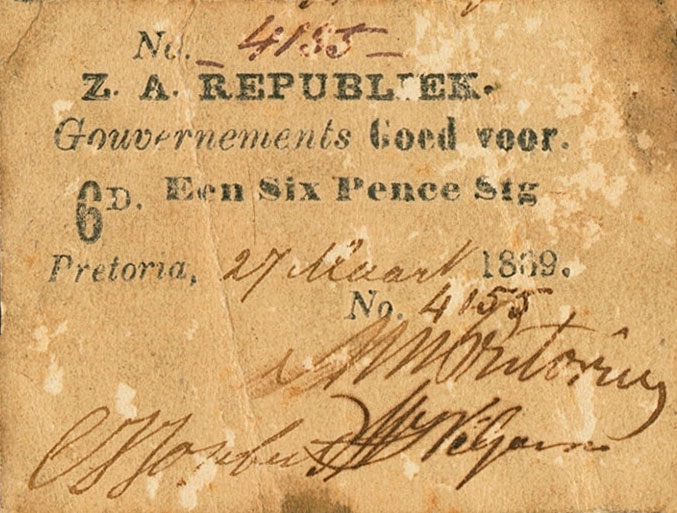 No. 4155
Z. A. REPUBLIEK.
Gouvernements Goed voor.
6D. Een Six Pence Stg
Pretoria, 27 Maart 1869.
No. 4155
MW Pretorius